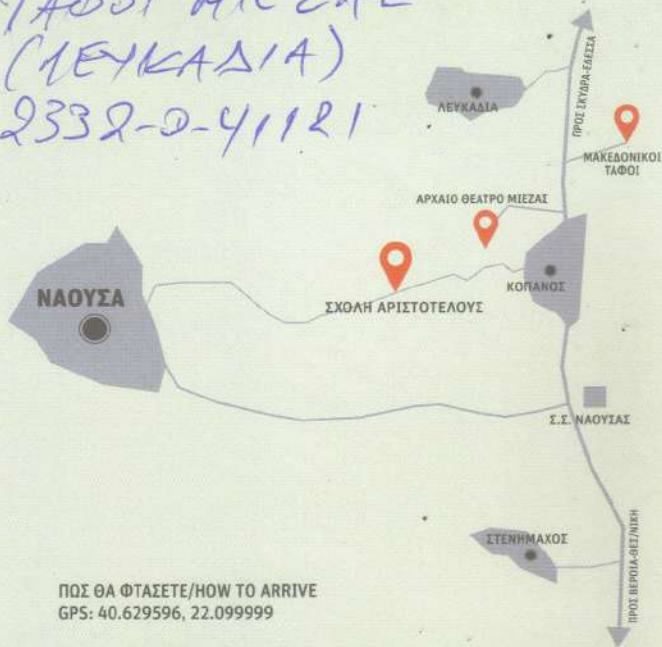 ΤΑΦΟΙ ΜΙΕΖΑΣ
(ΛΕΥΚΑΔΙΑ)
2332-0-41121
ΠΡΟΣ ΣΚΥΔΡΑ-ΕΔΕΣΣΑ
ΛΕΥΚΑΔΙΑ
ΜΑΚΕΔΟΝΙΚΟΙ
ΤΑΦΟΙ
ΑΡΧΑΙΟ ΘΕΑΤΡΟ ΜΙΕΖΑΣ
ΚΟΠΑΝΟΣ
ΝΑΟΥΣΑ
ΣΧΟΛΗ ΑΡΙΣΤΟΤΕΛΟΥΣ
Σ.Σ. ΝΑΟΥΣΑΣ
ΣΤΕΝΗΜΑΧΟΣ
ΠΡΟΣ ΒΕΡΟΙΑ-ΘΕΣ/ΝΙΚΗ
ΠΩΣ ΘΑ ΦΤΑΣΕΤΕ/HOW TO ARRIVE
GPS: 40.629596, 22.099999